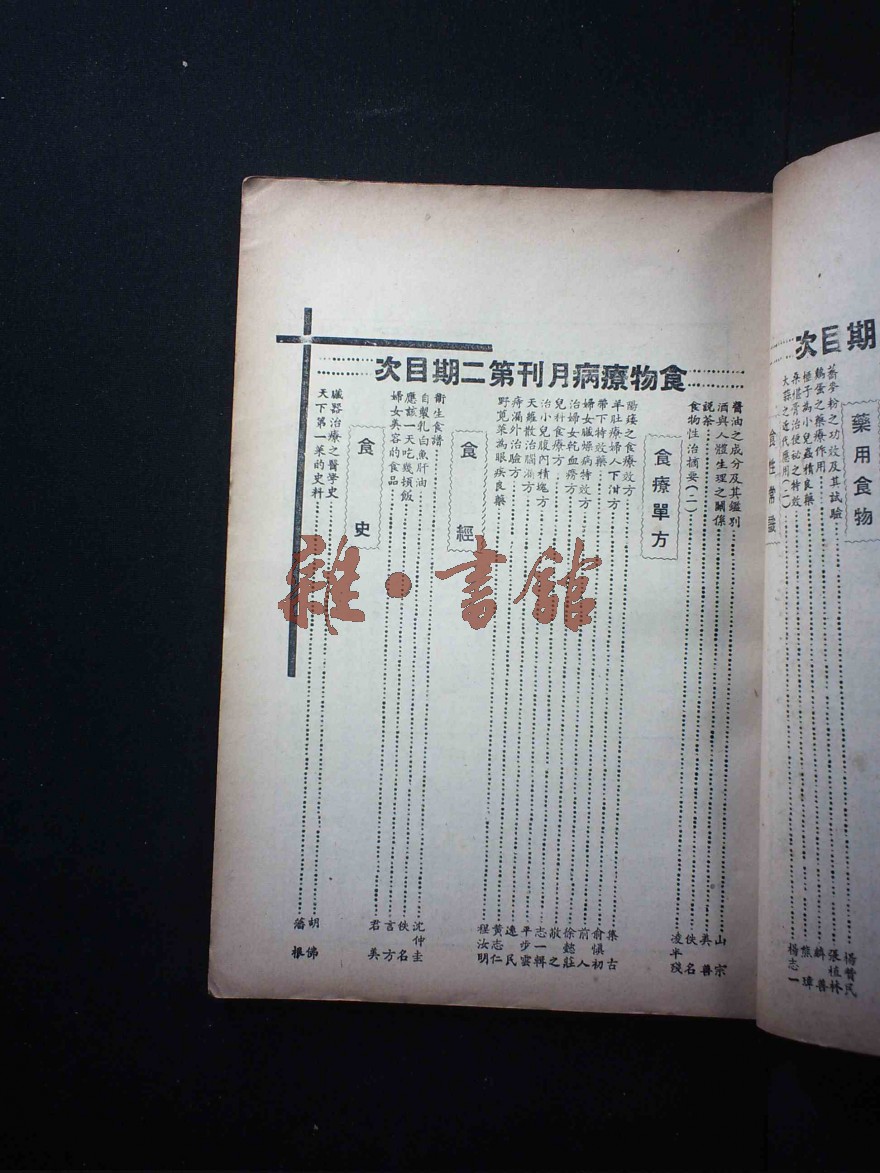 期目次
藥用食物
蕎麥粉之功效及其試驗 楊贊民
鷄蛋之藥療作用 張植林
榧子為小兒蟲積良藥 麟善
桑椹膏治便祕之特效 熊璋
大蒜之近代應用(二) 楊志一
食性常識
食物療病月刊第二期目次
醬油之成分及其鑑別 山宗
酒與人體生理之關係 美善
說茶 佚名
食物性治摘要(二) 凌半殘
食療單方
陽痿之食療效方 集古
羊肚療婦人下泔方 俞慎初
帶下特效藥 前人
婦女臟燥病特效方 徐懿莊
治婦女乾血癆方 敬之
兒科食療方 志一輯
治小兒腹內積塊方 平步雲
天蘿散治腦漏方 逸民
痔漏外治驗方 黃志仁
野莧菜為眼疾良藥 程汝明
食經
衛生食譜 沈仲圭
自製乳白魚肝油 佚名
應該一天吃幾頓飯 言方
婦女美容的食品 君美
食史
臟器治療之醫學史 胡佛
天下第一菜的史料 藩根
雜·書館